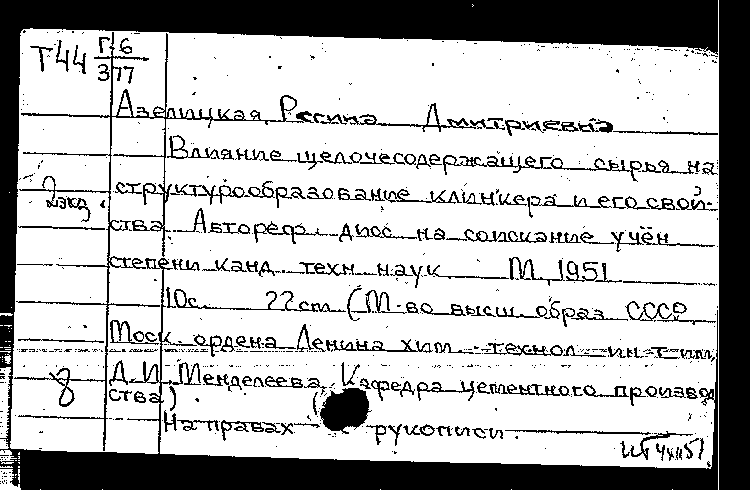 Т44 Г-6
377
Азелицкая, Регина Дмитриевна
Влияние щелочесодержащего сырья на
2 экз. структурообразование клинкера и его свой-
ства. Автореф. дисс на соискание учён
степени канд. техн наук. М, 1951
10с. 22 cm (М-во высш. образ СССР.
Моск. ордена Ленина хим.-технол ин-т им.
Д.И. Менделеева. Кафедра цементного производ
8 ства)
На правах рукописи.